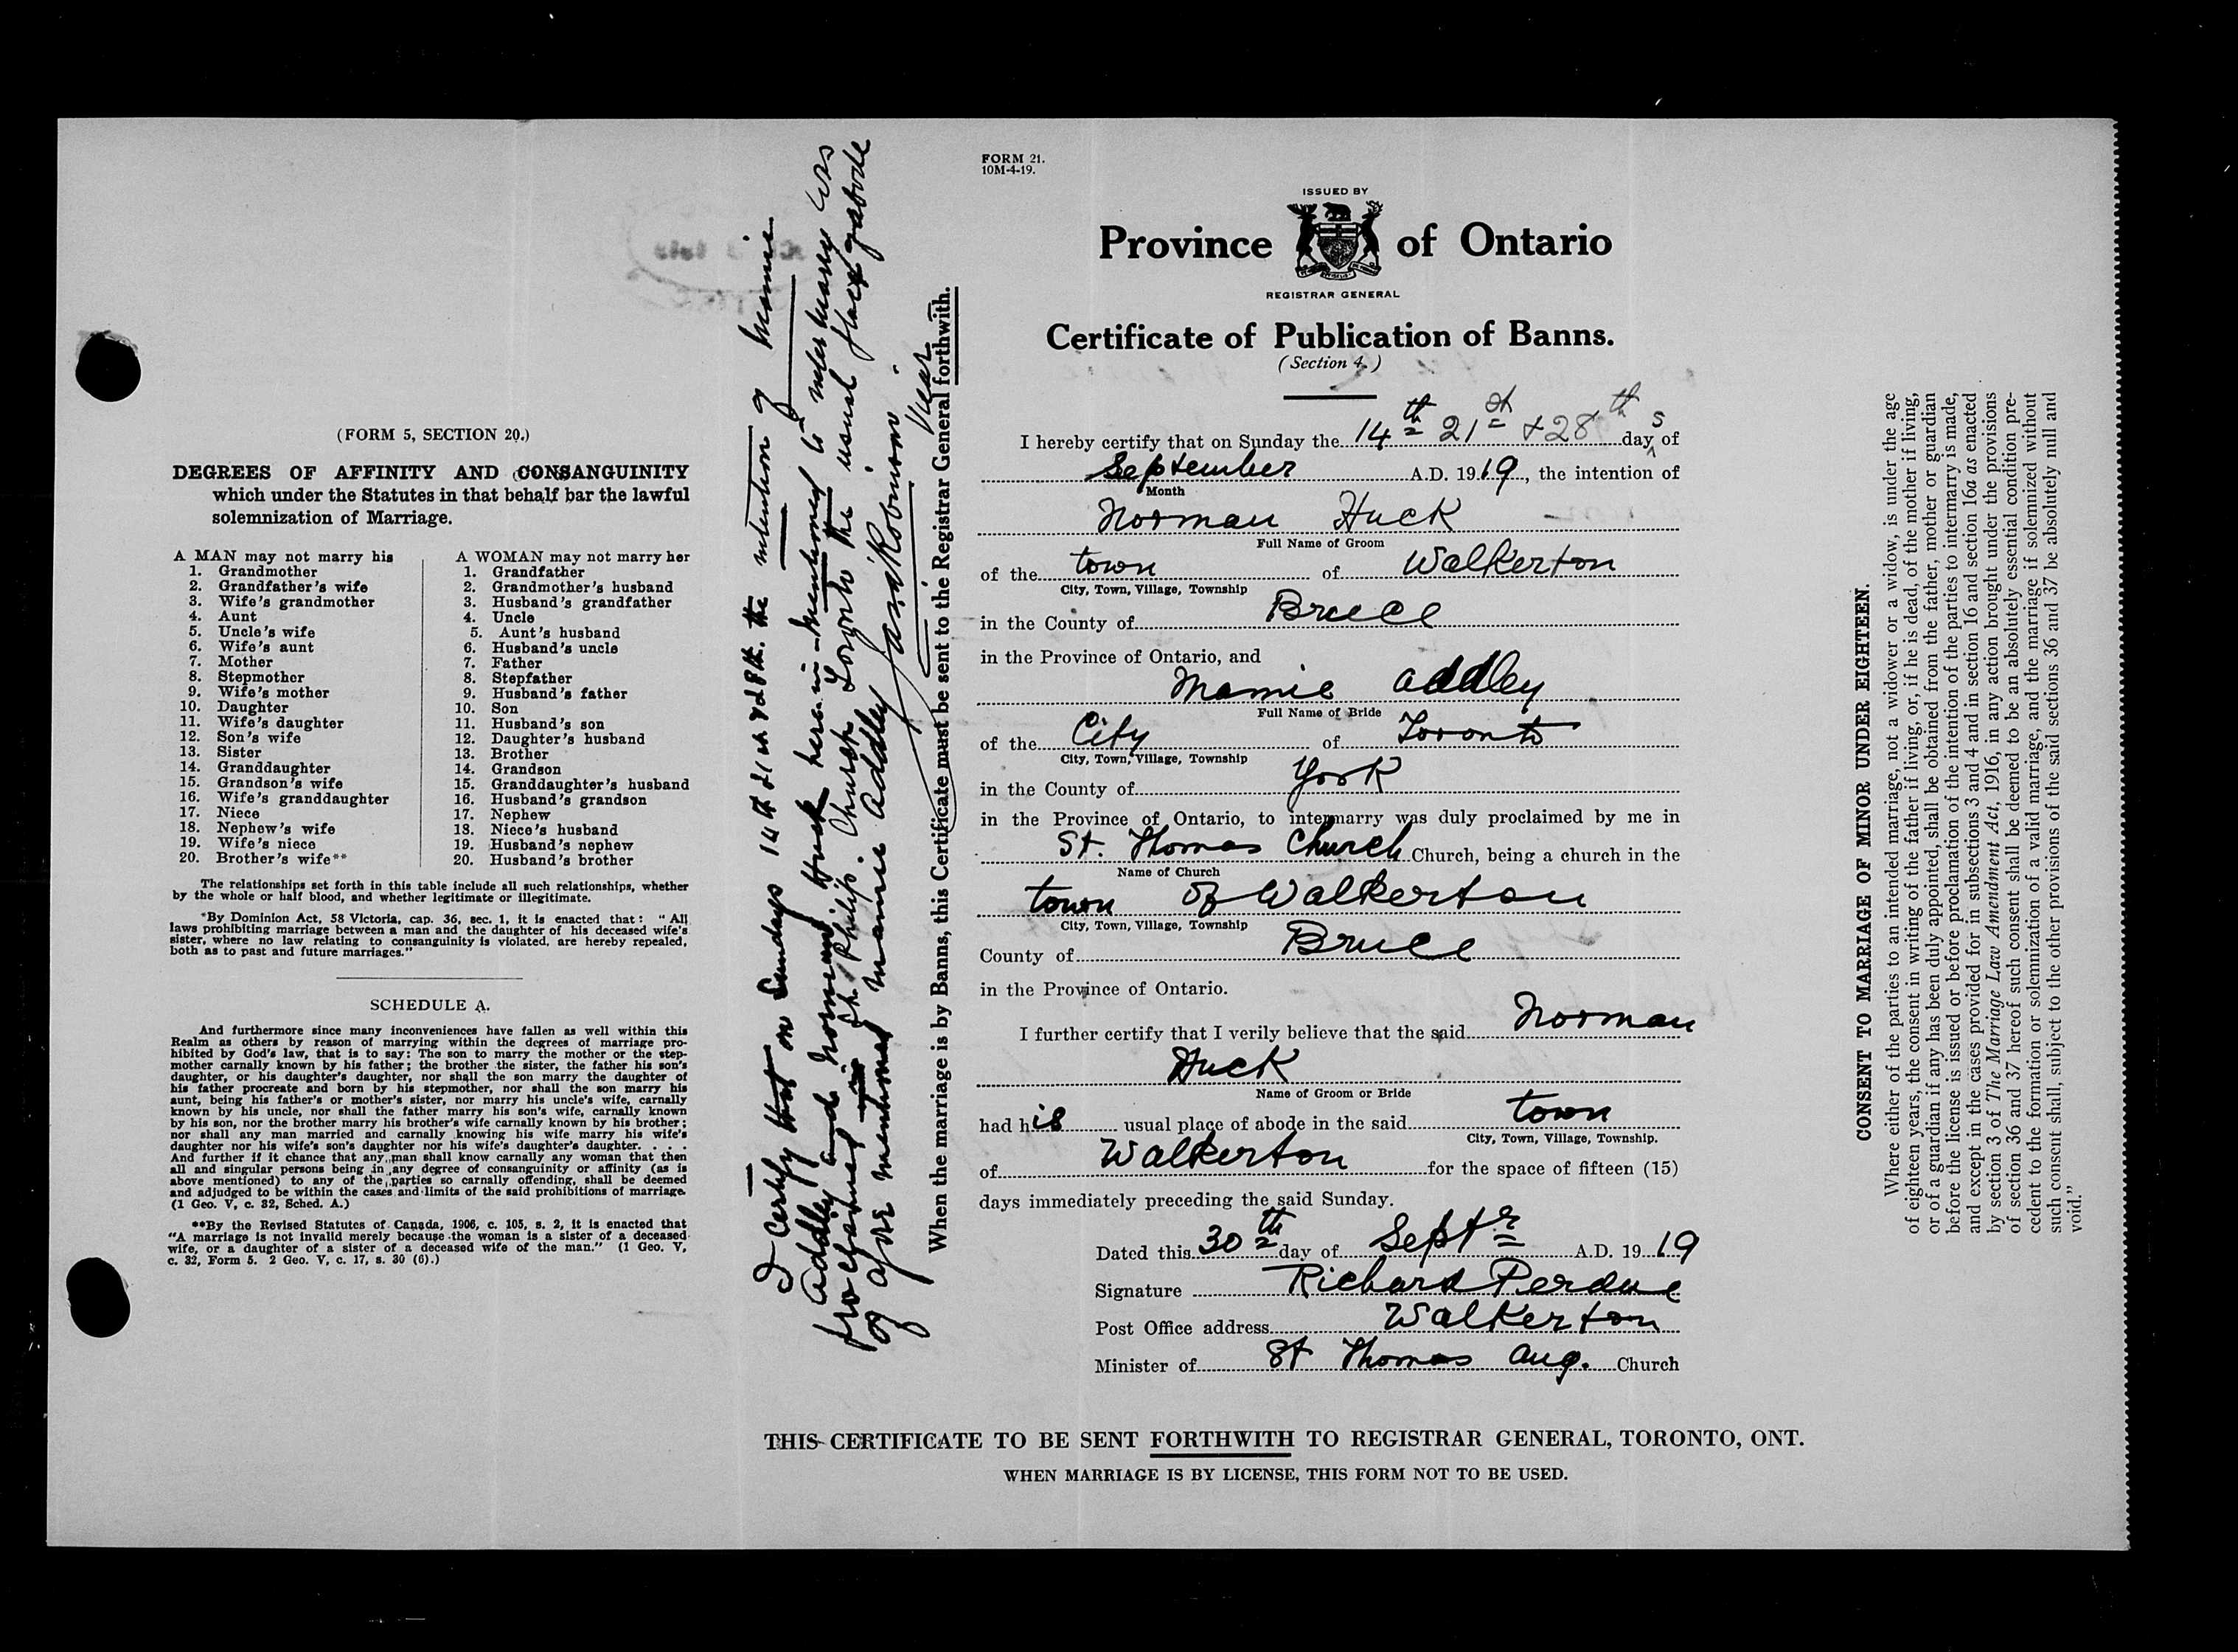 (FORM 5, SECTION 20.)
DEGREES OF AFFINITY AND CONSANGUINITY
which under the Statutes in that behalf bar the lawful
solemnization of Marriage.
A MAN may not marry his
1. Grandmother
2. Grandfather's wife
3. Wife's grandmother
4. Aunt
5. Uncle's wife
6. Wife's aunt
7. Mother
8. Stepmother
9. Wife's mother
10. Daughter
11. Wife's daughter
12. Son's wife
13. Sister
14. Granddaughter
15. Grandson's wife
16. Wife's granddaughter
17. Niece
18. Nephew's wife
19. Wife's niece
20. Brother's wife**
A WOMAN may not marry her
1. Grandfather
2. Grandmother's husband
3. Husband's grandfather
4. Uncle
5. Aunt's husband
6. Husband's uncle
7. Father
8. Stepfather
9. Husband's father
10. Son
11. Husband's son
12. Daughter's husband
13. Brother
14. Grandson
15. Granddaughter's husband
16. Husband's grandson
17. Nephew
18. Niece's husband
19. Husband's nephew
20. Husband's brother
The relationships set forth in this table include all such relationships, whether
by the whole or half blood, and whether legitimate or illegitimate.
*By Dominion Act, 58 Victoria, cap. 36, sec. 1, it is enacted that: "All
laws prohibiting marriage between a man and the daughter of his deceased wife's
sister, where no law relating to consanguinity is violated, are hereby repealed,
both as to past and future marriages."
SCHEDULE A.
And furthermore since many inconveniences have fallen as well within this
Realm as others by reason of marrying within the degrees of marriage pro-
hibited by God's law, that is to say: The son to marry the mother or the step-
mother carnally known by his father; the brother the sister, the father his son's
daughter, or his daughter's daughter, nor shall the son marry the daughter of
his father procreate and born by his stepmother, nor shall the son marry his
aunt, being his father's or mother's sister, nor marry his uncle's wife, carnally
known by his uncle, nor shall the father marry his son's wife, carnally known
by his son, nor the brother marry his brother's wife carnally known by his brother;
nor shall any man married and carnally knowing his wife marry his wife's
daughter nor his wife's son's daughter nor his wife's daughter's daughter. . . .
And further if it chance that any man shall know carnally any woman that then
all and singular persons being in any degree of consanguinity or affinity (as is
above mentioned) to any of the parties so carnally offending, shall be deemed
and adjudged to be within the cases and limits of the said prohibitions of marriage.
(1 Geo. V, c. 32, Sched. A.)
**By the Revised Statutes of Canada, 1906, c. 105, s. 2, it is enacted that
"A marriage is not invalid merely because the woman is a sister of a deceased
wife, or a daughter of a sister of a deceased wife of the man." (1 Geo. V,
c. 32, Form 5. 2 Geo. V, c. 17, s. 30 (6).)
I certify that on Sundays 14th 21st & 28th. the intention of Mamie
Addley and Norman Huck here-in-mentioned to inter marry was
proclaimed in St. Philip's Church Toronto the usual place of abode
of afore mentioned Mamie Addley
Vicar
When the marriage is by Banns, this Certificate must be sent to the Registrar General forthwith.
FORM 21.
10M-4-19.
ISSUED BY
Province of Ontario
REGISTRAR GENERAL
Certificate of Publication of Banns.
(Section 4.)
I hereby certify that on Sunday the 14th 21st & 28th days of
September A.D. 1919, the intention of
Month
Norman Huck
Full Name of Groom
of the town of Walkerton
City, Town, Village, Township
in the County of Bruce
in the Province of Ontario, and
Mamie Addley
Full Name of Bride
of the City of Toronto
City, Town, Village, Township
in the County of York
in the Province of Ontario, to intermarry was duly proclaimed by me in
St. Thomas Church Church, being a church in the
Name of Church
town of Walkerton
City, Town, Village, Township
County of Bruce
in the Province of Ontario.
I further certify that I verily believe that the said Norman
Huck
Name of Groom or Bride
had his usual place of abode in the said town
City, Town, Village, Township.
of Walkerton for the space of fifteen (15)
days immediately preceding the said Sunday.
Dated this 30th day of Septr A.D. 1919
Signature Richard Perdue
Post Office address Walkerton
Minister of St Thomas Ang. Church
THIS CERTIFICATE TO BE SENT FORTHWITH TO REGISTRAR GENERAL, TORONTO, ONT.
WHEN MARRIAGE IS BY LICENSE, THIS FORM NOT TO BE USED.
CONSENT TO MARRIAGE OF MINOR UNDER EIGHTEEN.
Where either of the parties to an intended marriage, not a widower or a widow, is under the age
of eighteen years, the consent in writing of the father if living, or, if he is dead, of the mother if living,
or of a guardian if any has been duly appointed, shall be obtained from the father, mother or guardian
before the license is issued or before proclamation of the intention of the parties to intermarry is made,
and except in the cases provided for in subsections 3 and 4 and in section 16 and section 16a as enacted
by section 3 of The Marriage Law Amendment Act, 1916, in any action brought under the provisions
of section 36 and 37 hereof such consent shall be deemed to be an absolutely essential condition pre-
cedent to the formation or solemnization of a valid marriage, and the marriage if solemnized without
such consent shall, subject to the other provisions of the said sections 36 and 37 be absolutely null and
void."